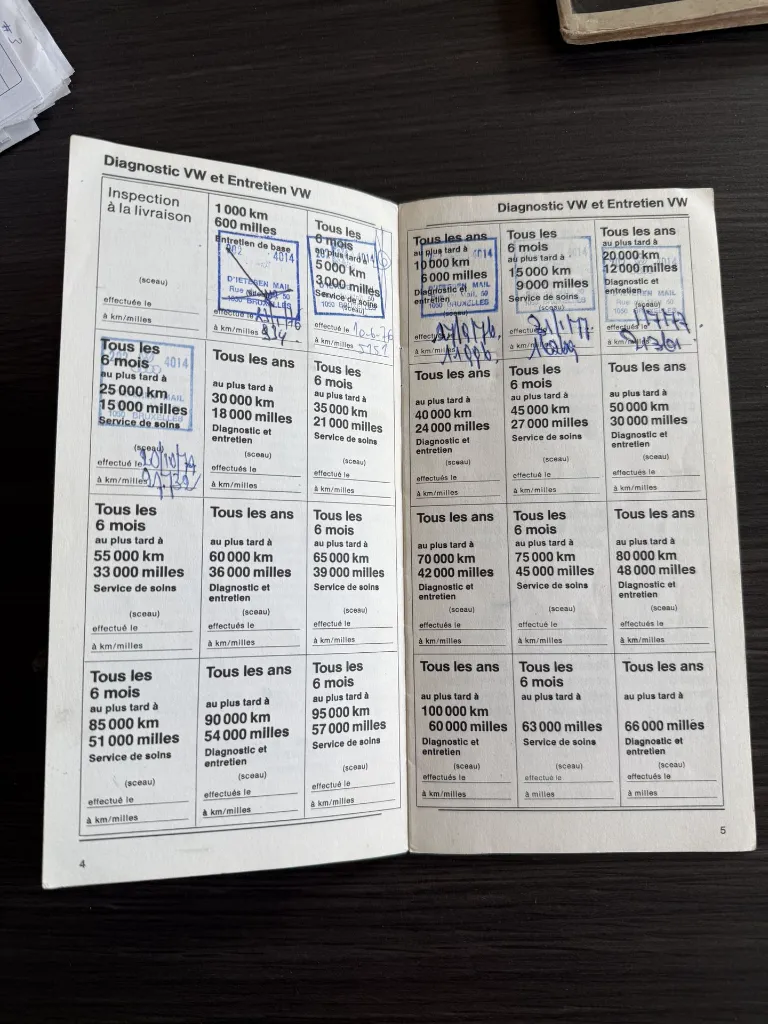 Diagnostic VW et Entretien VW
Inspection
à la livraison
(sceau)
effectuée le
à km/milles
1 000 km
600 milles
Entretien de base
4014
D'IETEREN MAIL
1050 BRUXELLES
934
Tous les
6 mois
au plus tard à
5 000 km
3 000 milles
Service de soins
(sceau)
effectué le 10-6-76
à km/milles 5151
Tous les
6 mois
4014
au plus tard à
25 000 km
15 000 milles
MAIL
1050 BRUXELLES
Service de soins
(sceau)
effectué le 20/10/77
à km/milles
Tous les ans
au plus tard à
30 000 km
18 000 milles
Diagnostic et
entretien
(sceau)
effectués le
à km/milles
Tous les
6 mois
au plus tard à
35 000 km
21 000 milles
Service de soins
(sceau)
effectué le
à km/milles
Tous les
6 mois
au plus tard à
55 000 km
33 000 milles
Service de soins
(sceau)
effectué le
à km/milles
Tous les ans
au plus tard à
60 000 km
36 000 milles
Diagnostic et
entretien
(sceau)
effectués le
à km/milles
Tous les
6 mois
au plus tard à
65 000 km
39 000 milles
Service de soins
(sceau)
effectué le
à km/milles
Tous les
6 mois
au plus tard à
85 000 km
51 000 milles
Service de soins
(sceau)
effectué le
à km/milles
Tous les ans
au plus tard à
90 000 km
54 000 milles
Diagnostic et
entretien
(sceau)
effectués le
à km/milles
Tous les
6 mois
au plus tard à
95 000 km
57 000 milles
Service de soins
(sceau)
effectué le
à km/milles
4
Diagnostic VW et Entretien VW
Tous les ans
au plus tard à
10 000 km
6 000 milles
Diagnostic et
entretien
1050 BRUXELLES
à km/milles
Tous les
6 mois
au plus tard à
15 000 km
9 000 milles
Service de soins
1050 BRUXELLES
à km/milles
Tous les ans
au plus tard à
20 000 km
12 000 milles
Diagnostic et
entretien
(sceau)
1050 BRUXELLES
à km/milles
Tous les ans
au plus tard à
40 000 km
24 000 milles
Diagnostic et
entretien
(sceau)
effectués le
à km/milles
Tous les
6 mois
au plus tard à
45 000 km
27 000 milles
Service de soins
(sceau)
effectué le
à km/milles
Tous les ans
au plus tard à
50 000 km
30 000 milles
Diagnostic et
entretien
(sceau)
effectués le
à km/milles
Tous les ans
au plus tard à
70 000 km
42 000 milles
Diagnostic et
entretien
(sceau)
effectués le
à km/milles
Tous les
6 mois
au plus tard à
75 000 km
45 000 milles
Service de soins
(sceau)
effectué le
à km/milles
Tous les ans
au plus tard à
80 000 km
48 000 milles
Diagnostic et
entretien
(sceau)
effectués le
à km/milles
Tous les ans
au plus tard à
100 000 km
60 000 milles
Diagnostic et
entretien
(sceau)
effectués le
à km/milles
Tous les
6 mois
au plus tard à
63 000 milles
Service de soins
(sceau)
effectué le
à milles
Tous les ans
au plus tard à
66 000 milles
Diagnostic et
entretien
(sceau)
effectués le
à milles
5